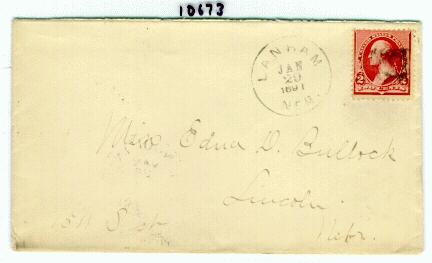 10673
LANHAM
JAN
29
1891
NEB.
Miss Edna D. Bullock
Lincoln
Nebr.
1511 S. st